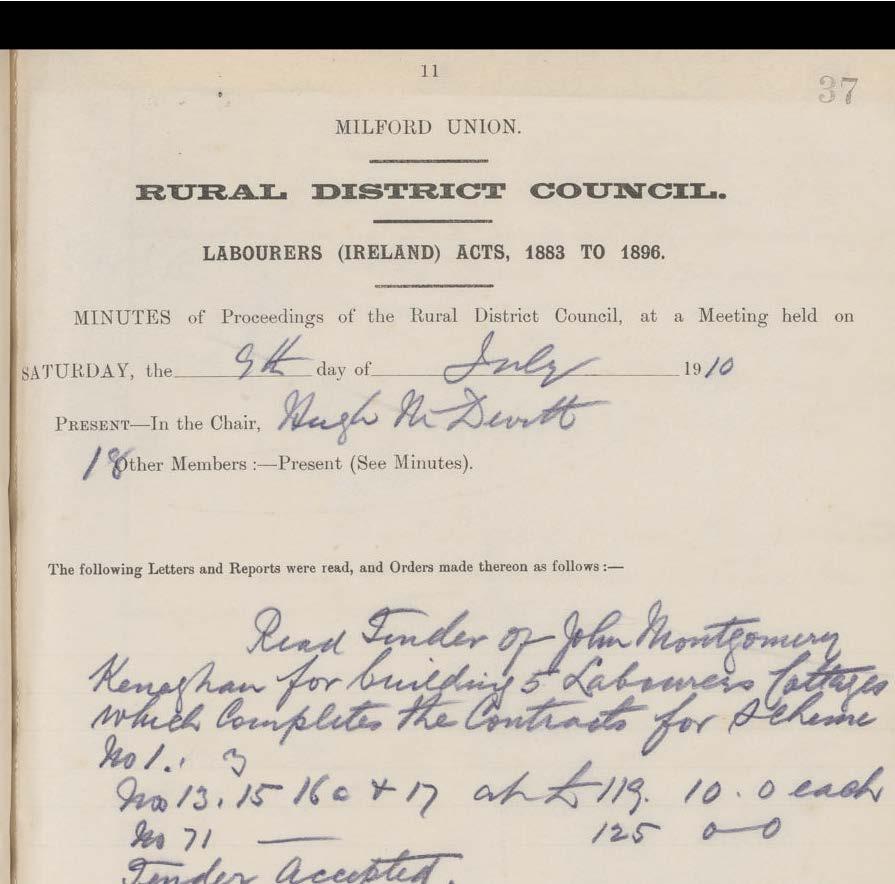 11
37
MILFORD UNION.
RURAL DISTRICT COUNCIL.
LABOURERS (IRELAND) ACTS, 1883 TO 1896.
MINUTES of Proceedings of the Rural District Council, at a Meeting held on
SATURDAY, the 9th day of July 1910
PRESENT—In the Chair, Hugh McDevitt
18 Other Members :—Present (See Minutes).
The following Letters and Reports were read, and Orders made thereon as follows :—
Read Tender of John Montgomery
Kenaghan for building 5 Labourers Cottages
which Completes the Contracts for Scheme
No 1. 3
Nos 13. 15 16a + 17 at £119. 10. 0 each
No 71 — 125 0—0
Tender Accepted.